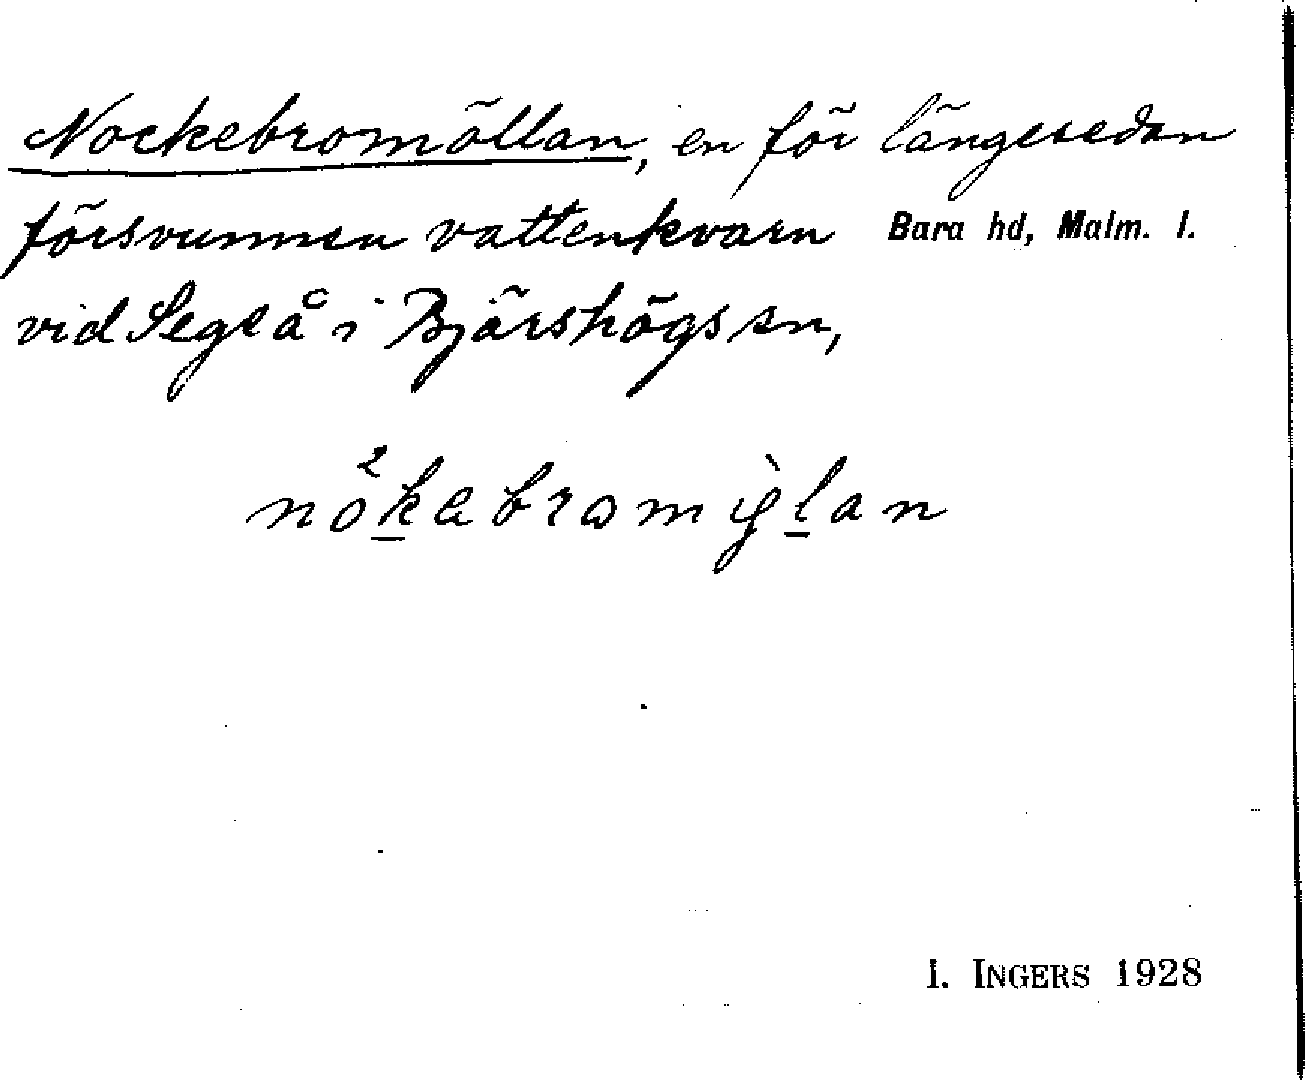 Nockebromöllan, en för längesedan
försvunnen vattenkvarn Bara hd, Malm. l.
vid Sege å i Bjärshögs sn,
I. INGERS 1928